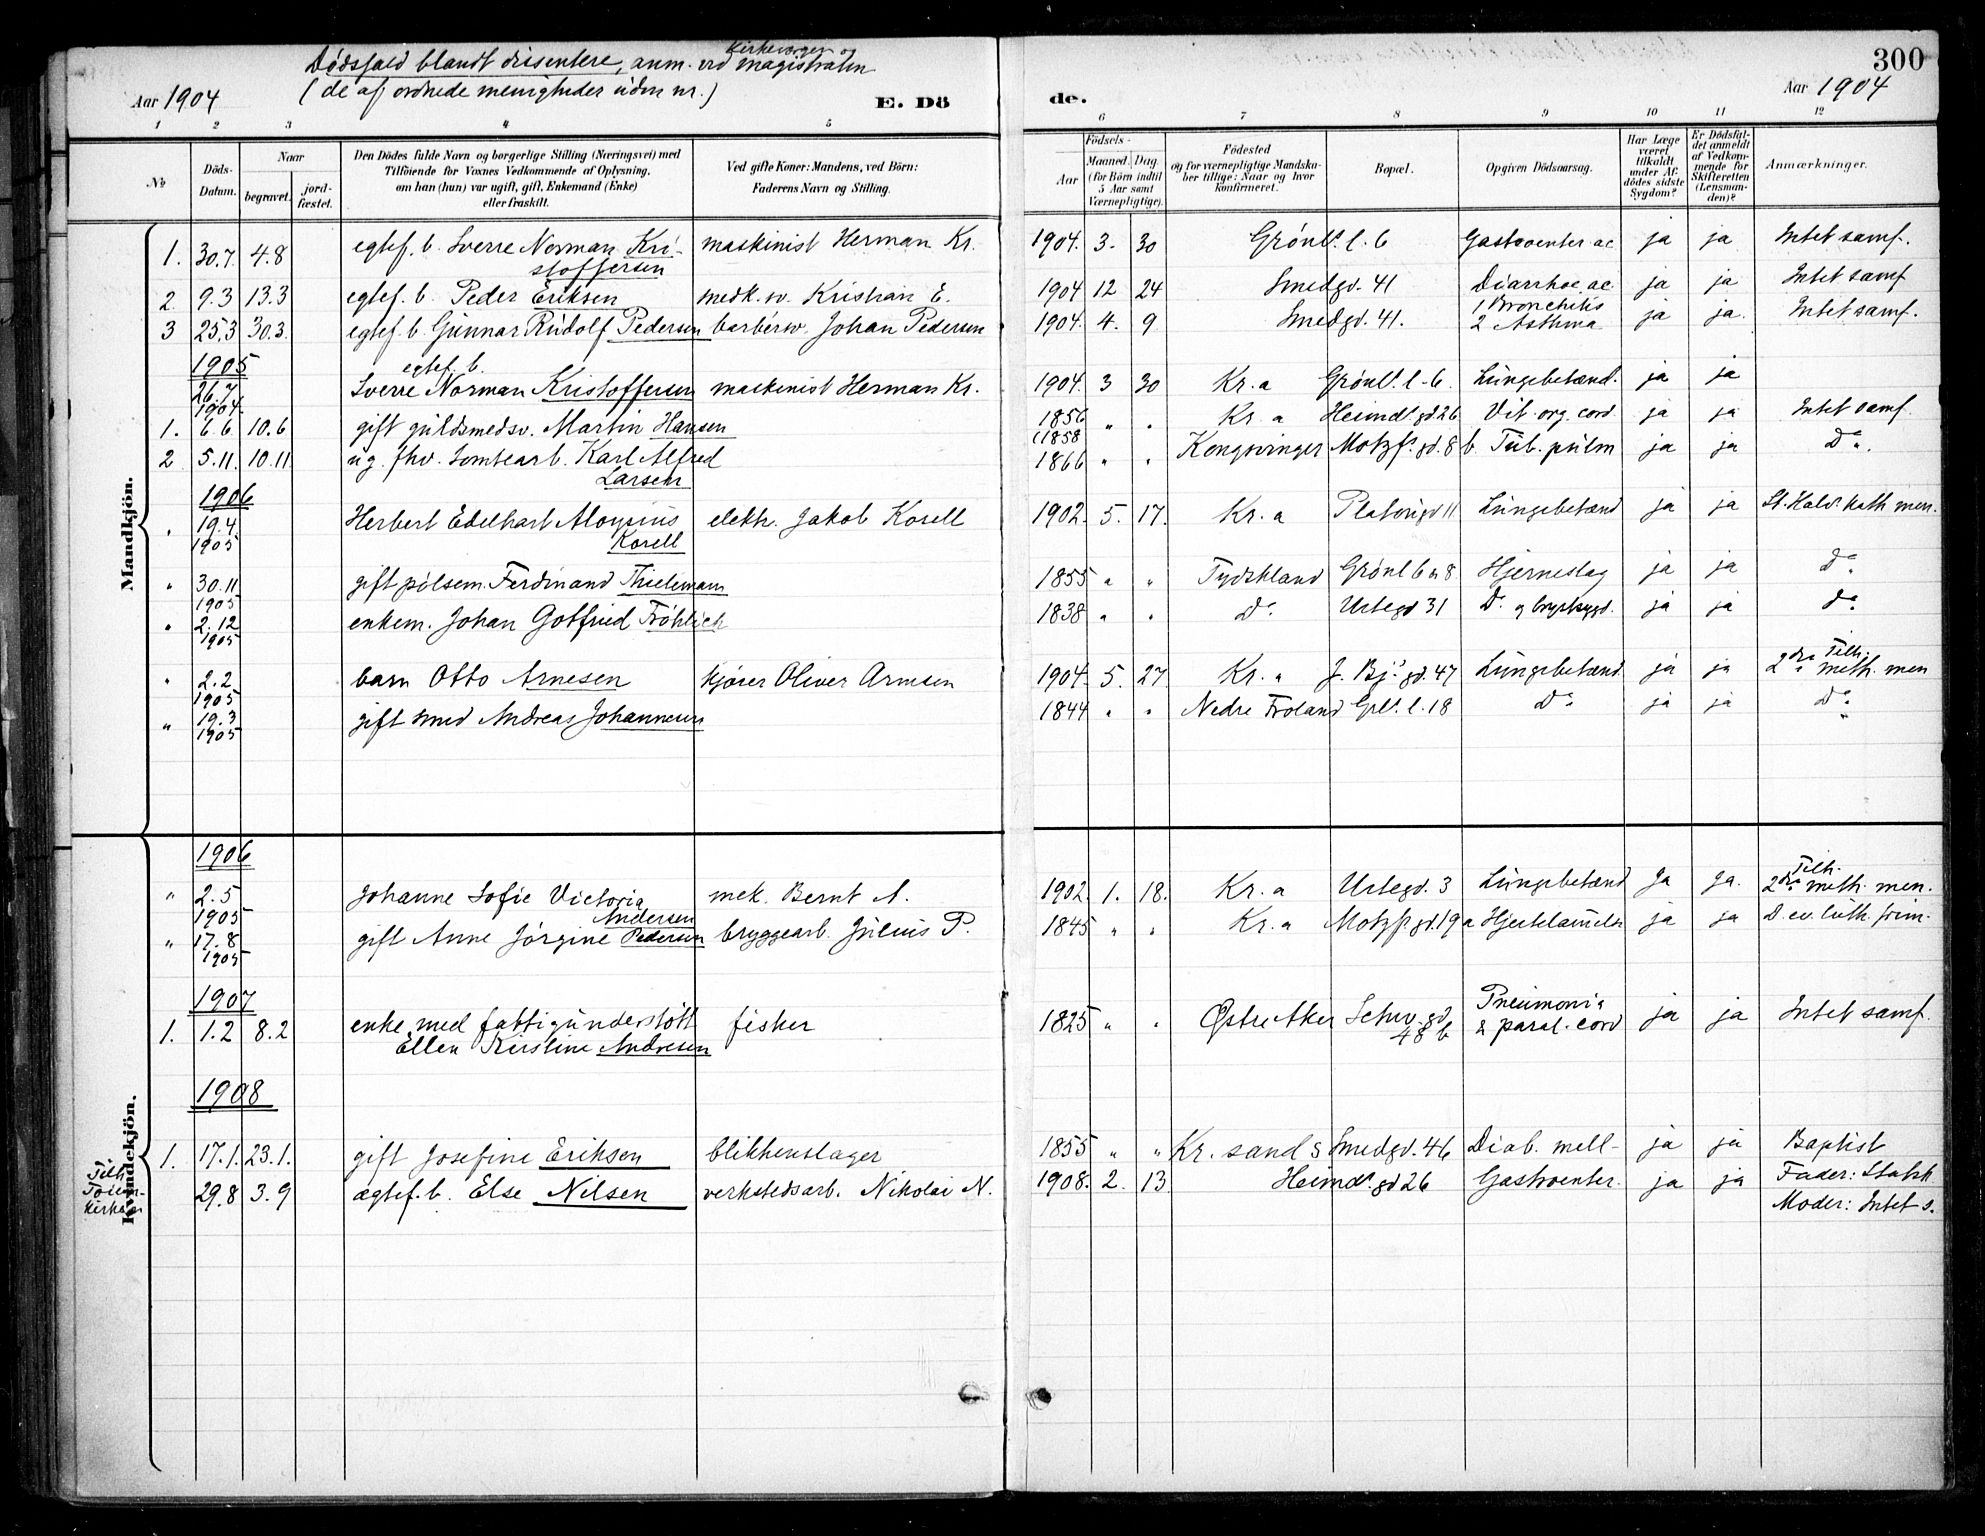 300
Dødsfald blandt dissentere, anm. ved kirkeverger og magistraten
(de af ordnede menigheder uden nr.)
Aar 1904 E. Dö de. Aar 1904
1 2 3 4 5 6 7 8 9 10 11 12
№ Döds-Datum. Naar begravet. jordfæstet. Den Dödes fulde Navn og borgerlige Stilling (Næringsvei) med Tilföiende for Voxnes Vedkommende af Oplysning, om han (hun) var ugift, gift, Enkemand (Enke) eller fraskilt. Ved gifte Koner: Mandens, ved Börn: Faderens Navn og Stilling. Födsels- Aar Maaned. Dag. (for Börn indtil 5 Aar samt Værnepligtige). Födested og for værnepligtige Mandskaber tillige: Naar og hvor konfirmeret. Bopæl. Opgiven Dödsaarsag. Har Læge været tilkaldt under Afdödes sidste Sygdom? Er Dödsfaldet anmeldt af Vedkommende for Skifteretten (Lensmanden)? Anmærkninger.
Mandkjön.
1. 30.7 4.8 egtef. b. Sverre Norman Kristoffersen maskinist Herman Kr. 1904. 3. 30 Grönl. l. 6 Gastroenter ac. ja ja Intet samf.
2. 9.3 13.3 egtef. b. Peder Eriksen medk. sv. Kristian E. 1904 12 24 Smedgd. 41 Diarrhoe ac. ja ja Intet samf
3 25.3 30.3. egtef. b. Gunnar Rudolf Pedersen barbersv. Johan Pedersen 1904. 4. 9 Smedgd. 41. 1 Bronchitis 2 Asthma ja ja. Intet samf.
1905
26.7 1904 egtef. b. Sverre Norman Kristoffersen maskinist Herman Kr. 1904. 3 30 Kr.a Grönl. l-6. Lungebetænd. ja ja
1. 6.6. 10.6 gift guldsmedsv. Martin Hansen 1856 (1858 " " Kr.a Heimdsgd. 26 Vit. org. cord ja ja Intet samf.
2 5.11. 10.11 ug. fhv. tomtearb. Karl Alfred Larsen 1866 " " Kongsvinger Motzfs gd. 8 b. Tub. pulm ja ja Do.
1906
" 19.4 1905 Herbert Edelhart Aloysius Korell elektr. Jakob Korell 1902. 5. 17. Kr.a Platousgd 11 Lungebetænd ja ja St. Halv. kath men.
" 30.11 1905 gift pölsem. Ferdinand Thielemann 1855 " " Tydskland Grönl 6 a 8 Hjerneslag ja ja Do
" 2.12 1905 enkem. Johan Gotfried Fröhlich 1838 " " Do Urtegd 31 Do. og brystsygd. ja ja Do
" 2.2 1905 barn Otto Arnesen kjörer Oliver Arnesen 1904. 5. 27. Kr.a J. Bjs gd. 47 Lungebetænd. ja ja Tilh. 2den meth. men
" 19.3 1905 gift smed Andreas Johannesen 1844 " " Nedre Froland Grl. l. 18 Do ja ja Do
Kvindekjön.
1906
" 2.5 1905 Johanne Sofie Victoria Andersen mek. Bernt A. 1902. 1. 18. Kr.a Urtegd. 3 Lungebetænd ja ja. Tilh. 2den meth. men.
" 17.8 1905 gift Anne Jörgine Pedersen bryggearb. Julius P. 1845 " " Kr.a Motzfs gd. 19a ja ja D. ev. luth. frim.
1907
1. 1.2 8.2 enke med fattigunderstött Ellen Kirstine Andresen fisker 1825 " " Östre Aker Schw. gd. 48 b Pneumonia & paral. cord ja ja Intet samf.
1908
1. 17.1. 23.1. gift Josefine Eriksen blikkenslager 1855 " " Kr. sand S Smedgd. 46 Diab. mell- ja ja Baptist
Tilh. Töienkirken 29.8 3.9 ægtef. b. Else Nilsen verkstedsarb. Nikolai N. 1908. 2. 13. Heimdsgd 26 Gastroenter. ja ja Fader: Statsk Moder: Intet s.